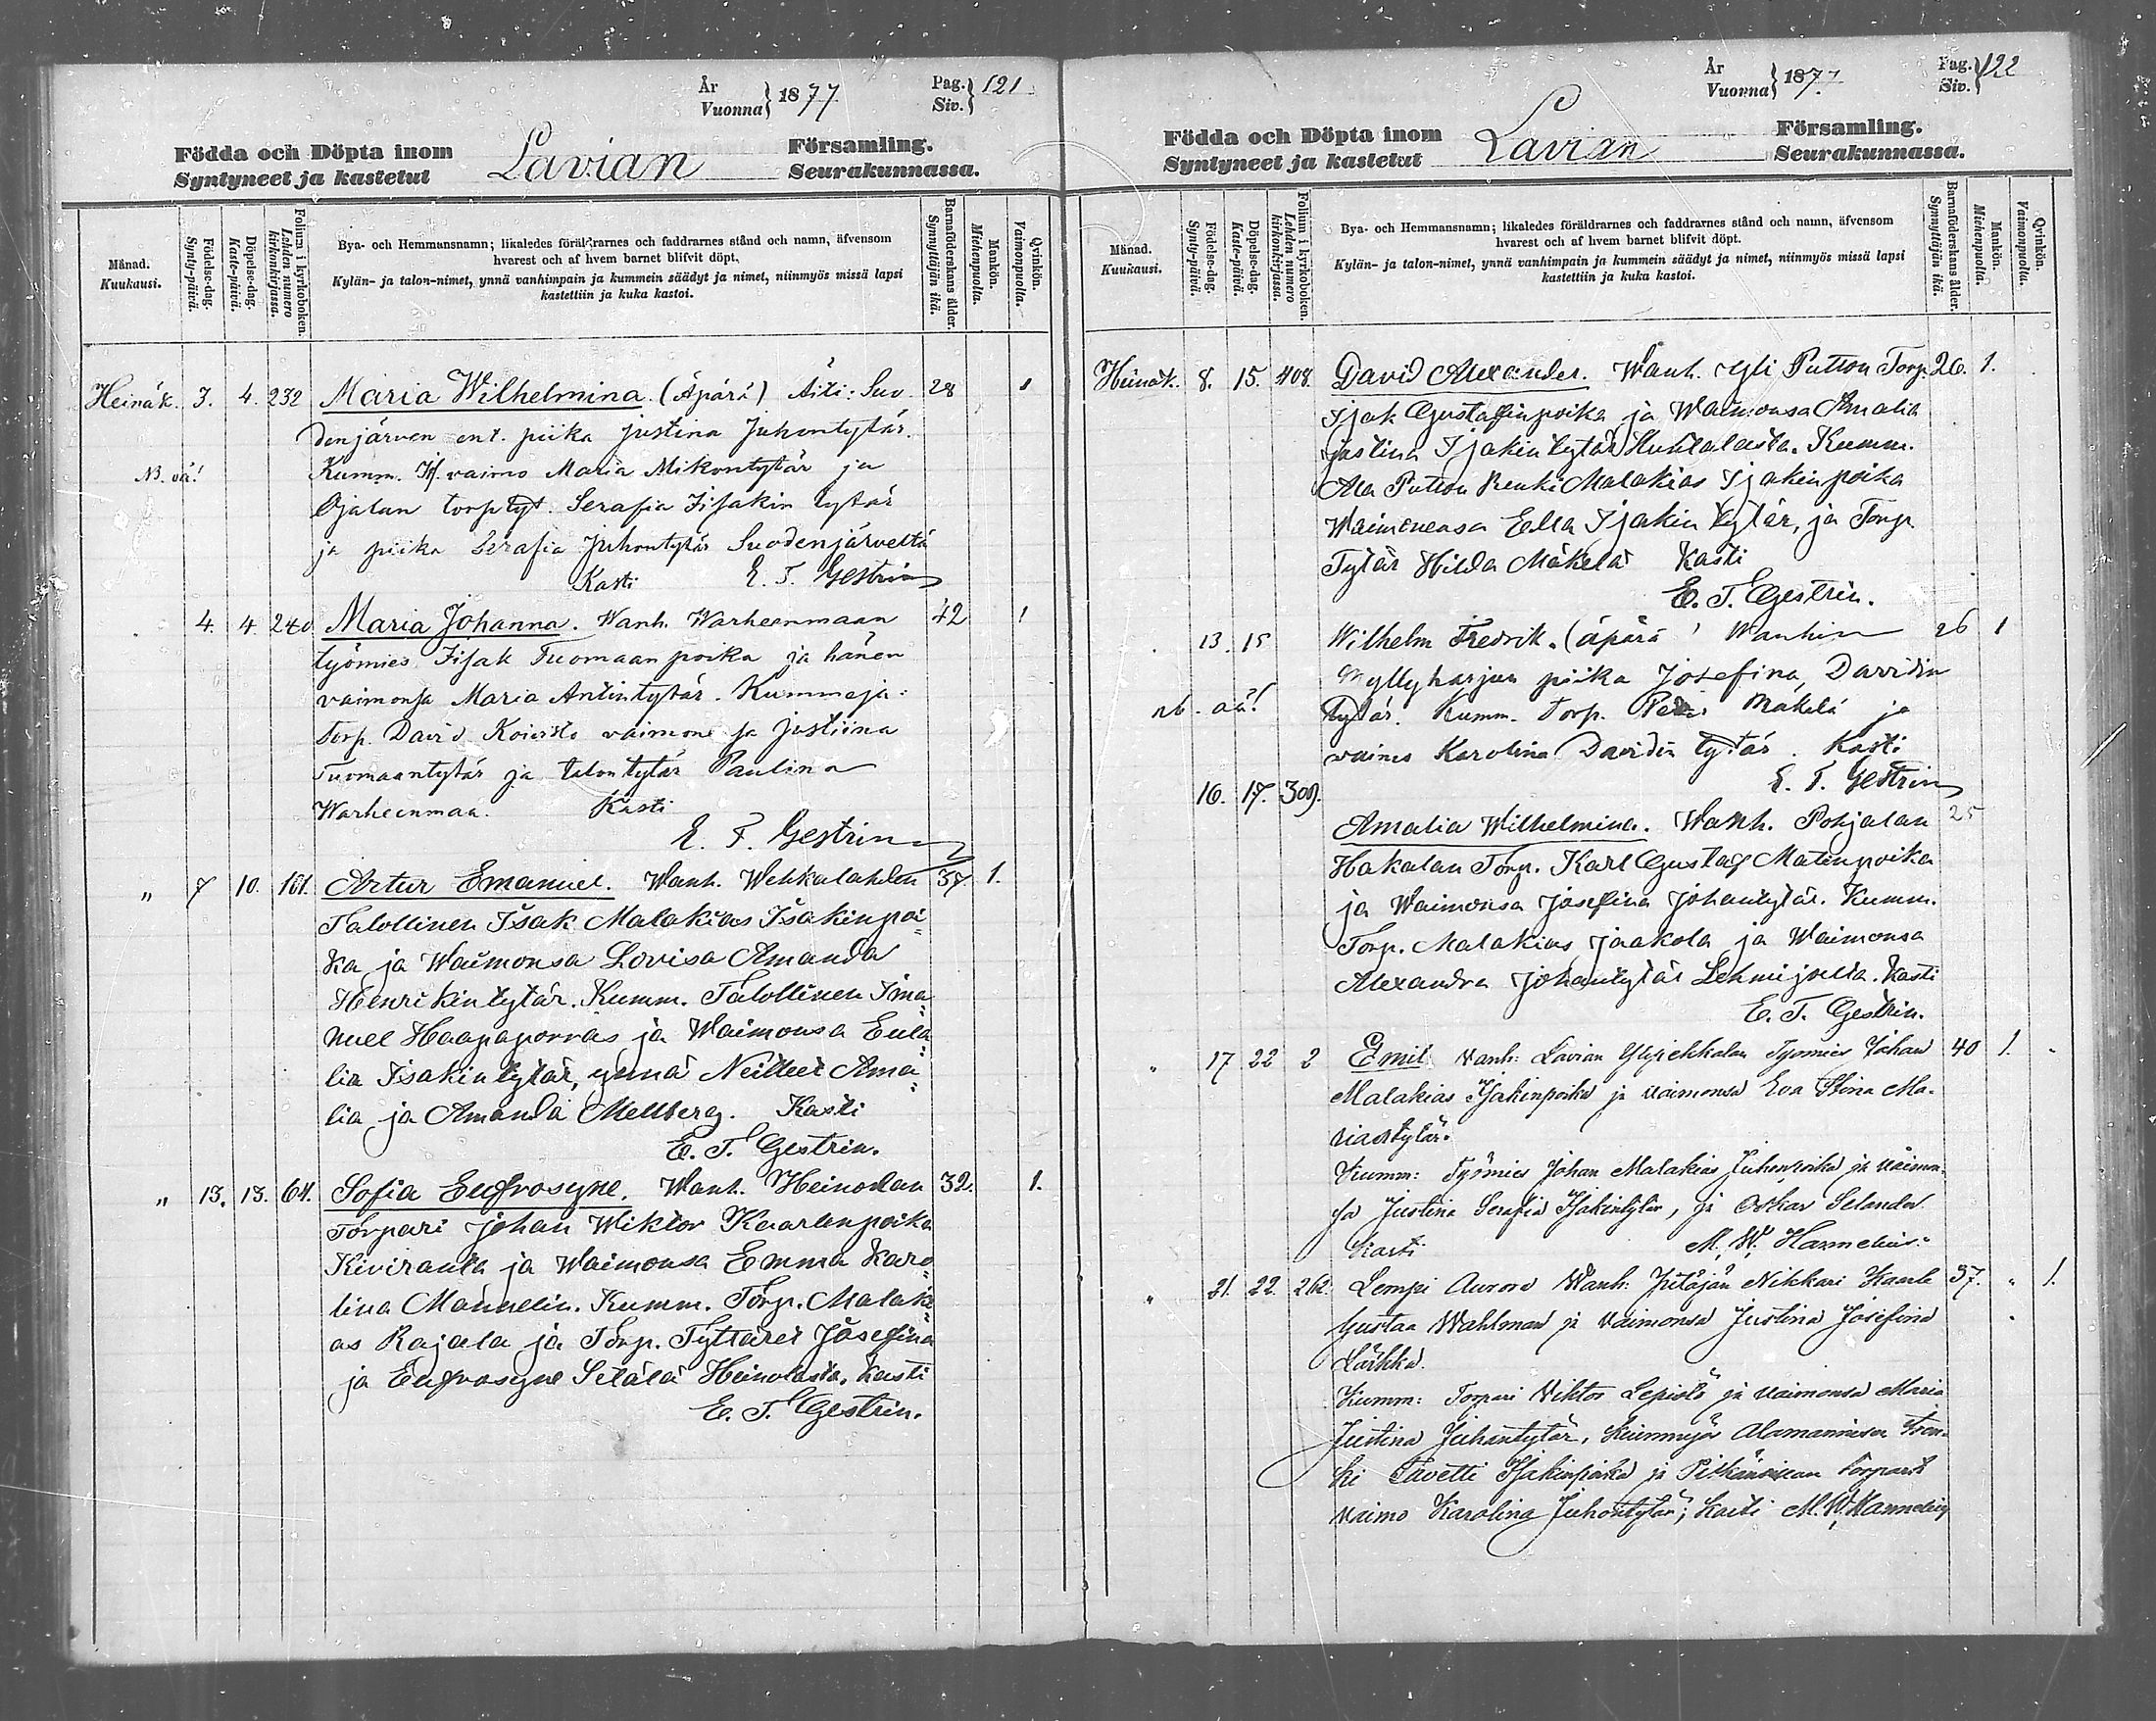 År
Vuonna } 1877.
Pag.
Siv. } 121
Födda och Döpta inom
Syntyneet ja kastetut
Lavian
Församling.
Seurakunnassa.
Månad.
Kuukausi.
Födelse-dag.
Synty-päivä.
Döpelse-dag.
Kaste-päivä.
Folium i kyrkoboken.
Lehden numero
kirkonkirjassa.
Bya- och Hemmansnamn; likaledes föräldrarnes och faddrarnes stånd och namn, äfvensom
hvarest och af hvem barnet blifvit döpt.
Kylän- ja talon-nimet, ynnä vanhimpain ja kummein säädyt ja nimet, niinmyös missä lapsi
kastettiin ja kuka kastoi.
Barnaföderskans ålder.
Synnyttäjän ikä.
Mankön.
Miehenpuolta.
Qvinkön.
Vaimonpuolta.
Heinäk. 3. 4. 232 Maria Wilhelmina. (Äpärä) Äiti: Suo- 28 1
denjärven ent. piika Justina Juhontytär.
NB. vä! Kumm. vaimo Maria Mikontytär ja
Ojalan torp tyt. Serafia Iisakin tytär
ja piika Serafia Juhontytär Suodenjärveltä
Kasti E. T. Gestrin
4. 4. 240 Maria Johanna. Wanh. Warheenmaan 42 1
työmies Iisak Tuomaan poika ja hänen
vaimonsa Maria Antintytär. Kummeja:
torp. David Koivisto vaimonsa Justiina
Tuomaantytär ja talon tytär Paulina
Warheenmaa. Kasti
E. T. Gestrin
" 7 10. 161. Artur Emanuel. Wanh. Wehkalahden 37 1.
Talollinen Isak Malakias Isakinpoi-
ka ja Waimonsa Lovisa Amanda
Henrikintytär. Kumm. Talollinen Ima-
nuel Haapaporras ja Waimonsa Eula-
lia Isakintytär, ynnä Neitteet Ama-
lia ja Amanda Mellberg. Kasti
E. T. Gestrin.
" 13. 13. 64. Sofia Eufrosyne. Wanh. Heinolan 32. 1.
Torpari Johan Wiktor Kaarlenpoika
Kiviranta ja Waimonsa Emma Karo-
lina Mannelin. Kumm. Torp. Malaki-
as Rajala ja Torp. Tyttäret Josefina
ja Eufrosyne Setälä Heinolasta. Kasti
E. T. Gestrin.
År
Vuonna } 1877.
Pag.
Siv. } 122
Födda och Döpta inom
Syntyneet ja kastetut
Lavian
Församling.
Seurakunnassa.
Månad.
Kuukausi.
Födelse-dag.
Synty-päivä.
Döpelse-dag.
Kaste-päivä.
Folium i kyrkoboken.
Lehden numero
kirkonkirjassa.
Bya- och Hemmansnamn; likaledes föräldrarnes och faddrarnes stånd och namn, äfvensom
hvarest och af hvem barnet blifvit döpt.
Kylän- ja talon-nimet, ynnä vanhimpain ja kummein säädyt ja nimet, niinmyös missä lapsi
kastettiin ja kuka kastoi.
Barnaföderskans ålder.
Synnyttäjän ikä.
Mankön.
Miehenpuolta.
Qvinkön.
Vaimonpuolta.
Heinäk. 8. 15. 408. David Alexander. Wanh. Yli Putton Torp. 26. 1.
Isak Gustafinpoika ja Waimonsa Amalia
Justina Isakintytär Huhtalasta. Kumm.
Ala Putton Renki Malakias Isakinpoika
Waimoneasa Ella Isakin tytär, ja Torp.
Tytär Hilda Mäkelä Kasti
E. T. Gestrin.
13. 15 Wilhelm Fredrik. (äpärä) Wanhin 26 1
Myllyharjun piika Josefina, Davidin
nb. ää! tytär. Kumm. torp. Mäkelä ja
vaimo Karolina Davidin tytär. Kasti
E. T. Gestrin
16. 17. 309.
Amalia Wilhelmina. Wanh. Pohjalan 25
Hakalan Torp. Karl Gustaf Matinpoika
ja Waimonsa Josefina Johantytär. Kumm.
Torp. Malakias Jaakola ja Waimonsa
Alexandra Johantytär Lehmijoelta. Kasti
E. T. Gestrin.
" 17 22 2 Emil Vanh: Lavian Ylipiekkalan Työmies Johan 40 1.
Malakias Isakinpoika ja vaimonsa Eva Stina Ma-
tiastytär.
Kumm: Työmies Johan Malakias Juhonpoika ja vaimon-
sa Justina Serafia Isakintytär, ja Oskar Selander
Kasti M. W. Hannelius
" 21. 22. 262. Lempi Aurora Wanh: Pitäjän Nikkari Kaarle 37. " 1.
Gustaa Wahlman ja vaimonsa Justina Josefina
Lärkka.
Kumm: Torpari Viktor Lepistö ja vaimonsa Maria
Justina Juhantytär, Alamannisen tren-
ki Taavetti Isakinpoika ja torparin
vaimo Karolina Juhontytär; Kasti M. W. Hannelius